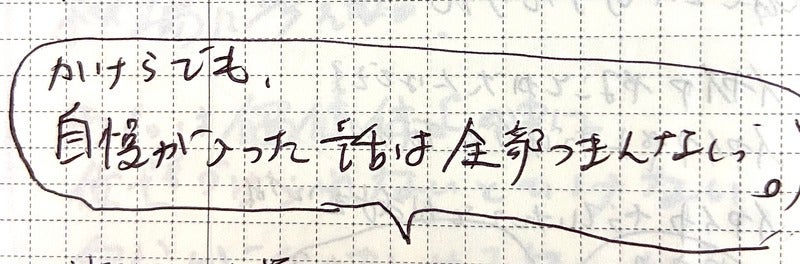 かけらでも、
自慢が入った話は全部つまんないっ。